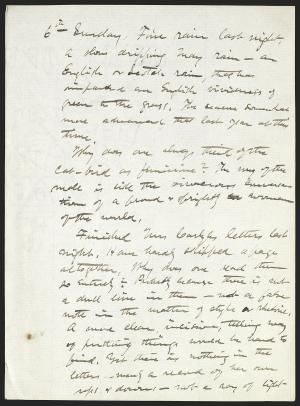 6th Sunday. Fine rain last night,
a slow dripping May rain — an
English or Scotch rain, that has
imparted an English vividness of
green to the grass. The season somewhat
more advanced than last year at this
time.
Why does one always think of the
cat-bird as feminine? The song of the
male is like the vivacious
of a proud & sprightly woman
of the world.
Finished Mrs Carlyles letters last
night, & have hardly skipped a page
altogether. Why does one read them
so entirely? Probably because there is not
a dull line in them — not a false
note in the matter of style or rhetoric.
A more clear, incisive, telling way
of putting things would be hard to
find. Yet there is nothing in the
letters — merely a record of her own
ups & downs — not a ray of light